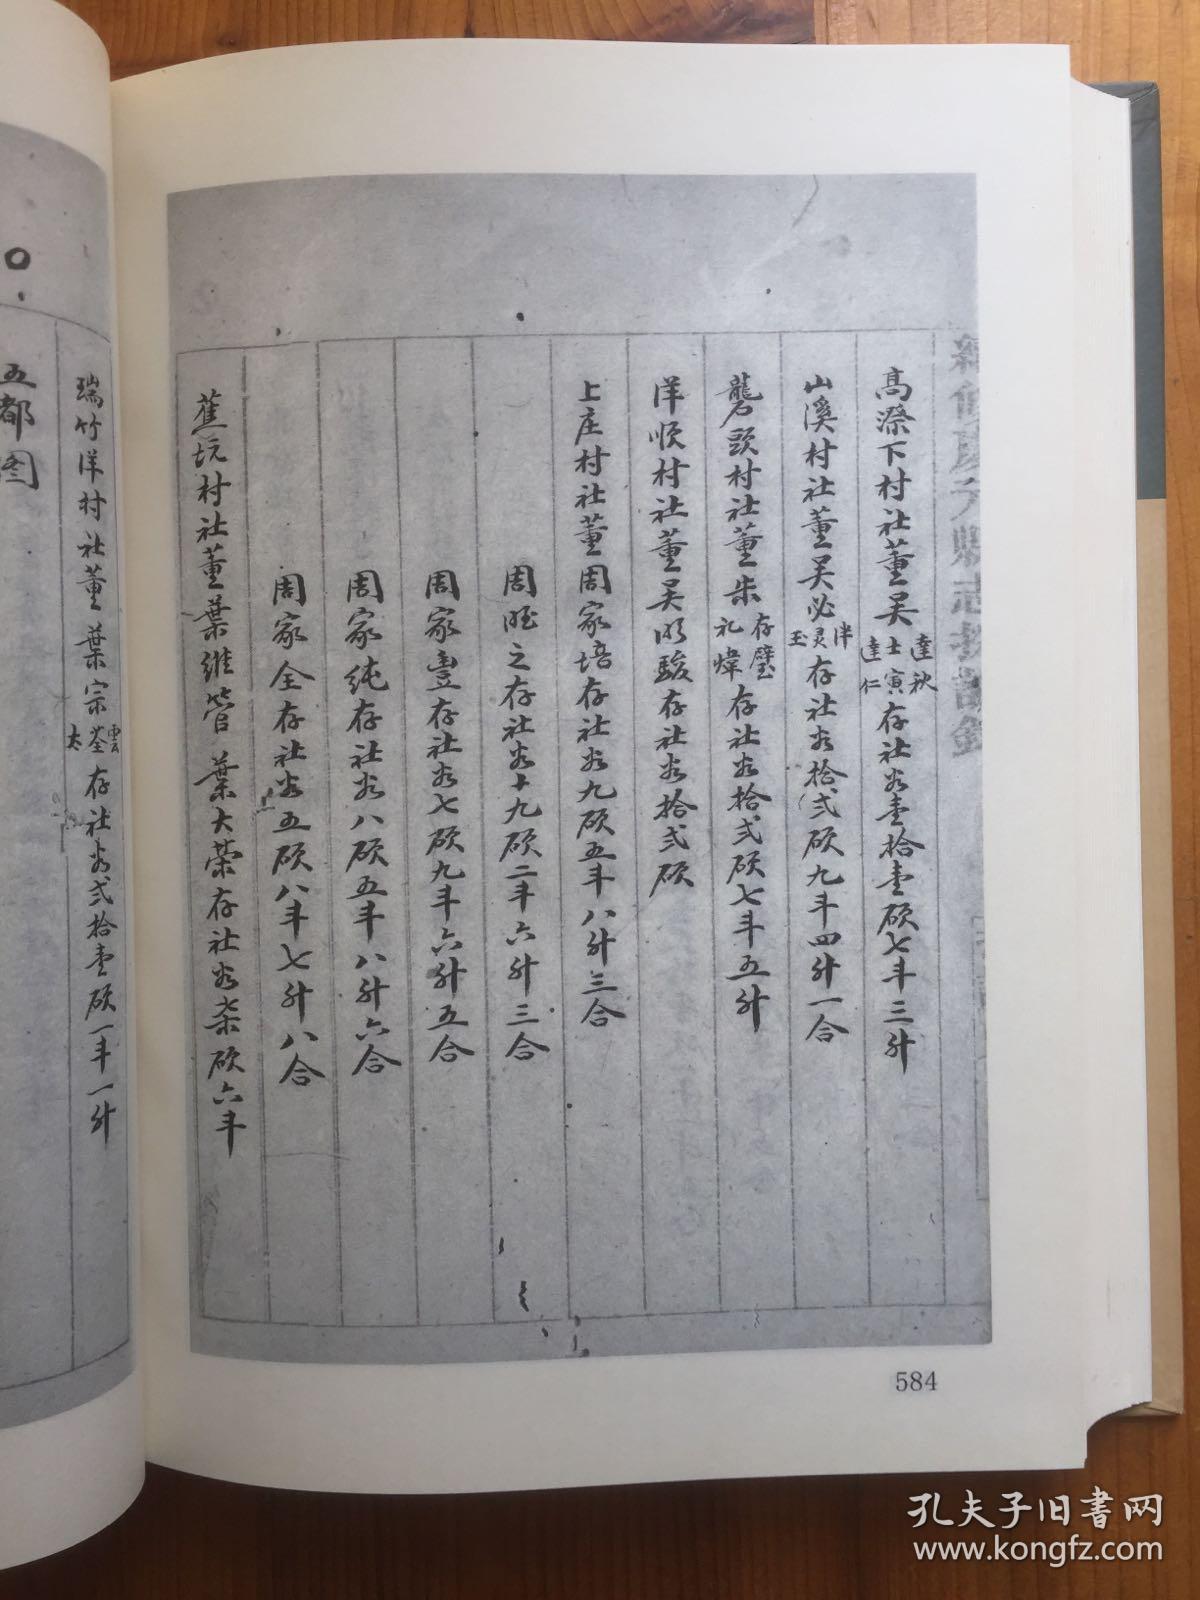 高漈下村社董吴達秋士寅達仁存社谷壹拾壹碩七斗三升
山溪村社董吴必泮灵玉存社谷拾弍碩九斗四升一合
礱頭村社董朱存璧礼煒存社谷拾弍碩七斗五升
洋順村社董吴 駿存社谷拾弍碩
上庄村社董周家培存社谷九碩五斗八升三合
周 之存社谷十九碩二斗六升三合
周家壹存社谷七碩九斗六升五合
周家純存社谷八碩五斗八升六合
周家全存社谷五碩八斗七升八合
蕉坑村社董葉維管 葉大榮存社谷柒碩六斗
瑞竹洋村社董葉宗雲荃太存社谷弍拾壹碩一斗一升
五都图
584
孔夫子旧书网
www.kongfz.com